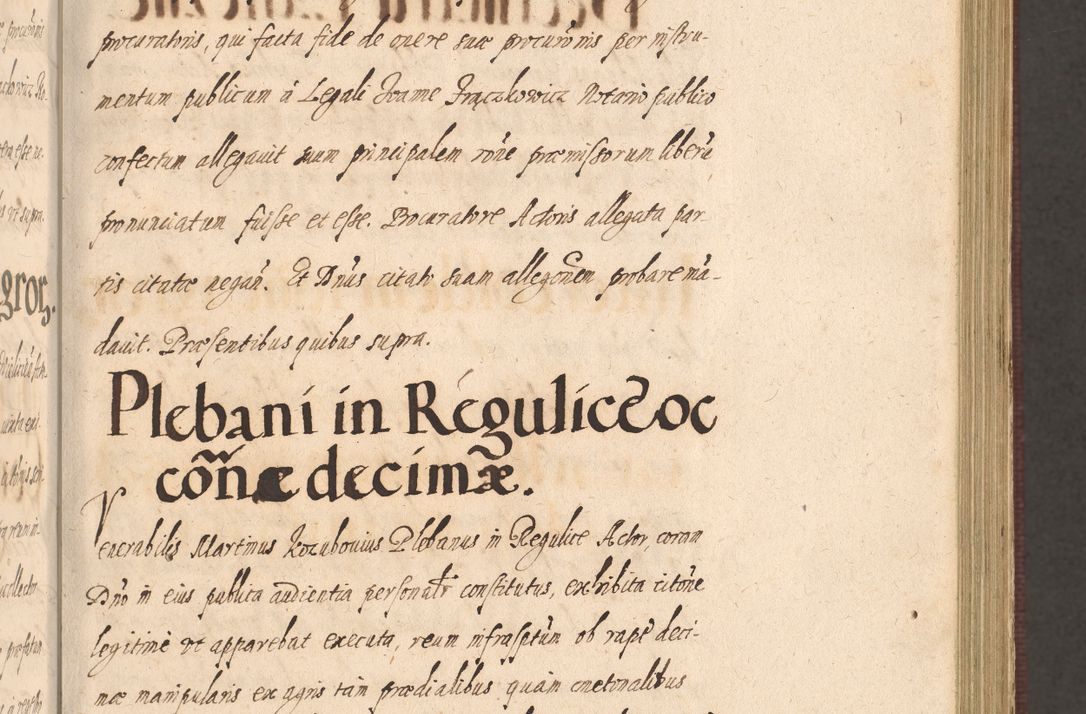 procuratoris, qui facta fide de onere suæ procurõnis per instru-
mentum publicum à Legali Joanne Frączkowicz Notario publico
confectum allegavit suum principalem rõne præmissorum liberũ
pronunciatum fuisse et esse. Procuratore Actoris allegata par
tis citatæ negañ. Et Dnũs citatũ suam allegõnem probare mã-
davit. Præsentibus quibus supra.
Plebani in Regulice oc
cõñæ decimæ.
Venerabilis Martinus Kozubovius Plebanus in Regulice Actor, coram
Dnõ in eius publica audientia personalr̃ constitutus, exhibita citõne
legitimè ut apparebat executa, reum infrasptũm ob raptũ deci-
mæ manipularis ex agris tàm prædialibus quàm cmetonalibus
gror.
ut supra.